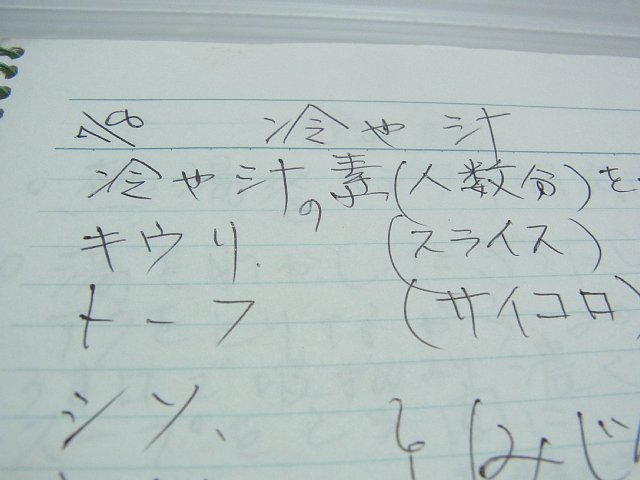 7/8 冷や汁
冷や汁の素(人数分)を
キウリ.
(スライス)
トーフ
(サイコロ)
シソ、
(みじ